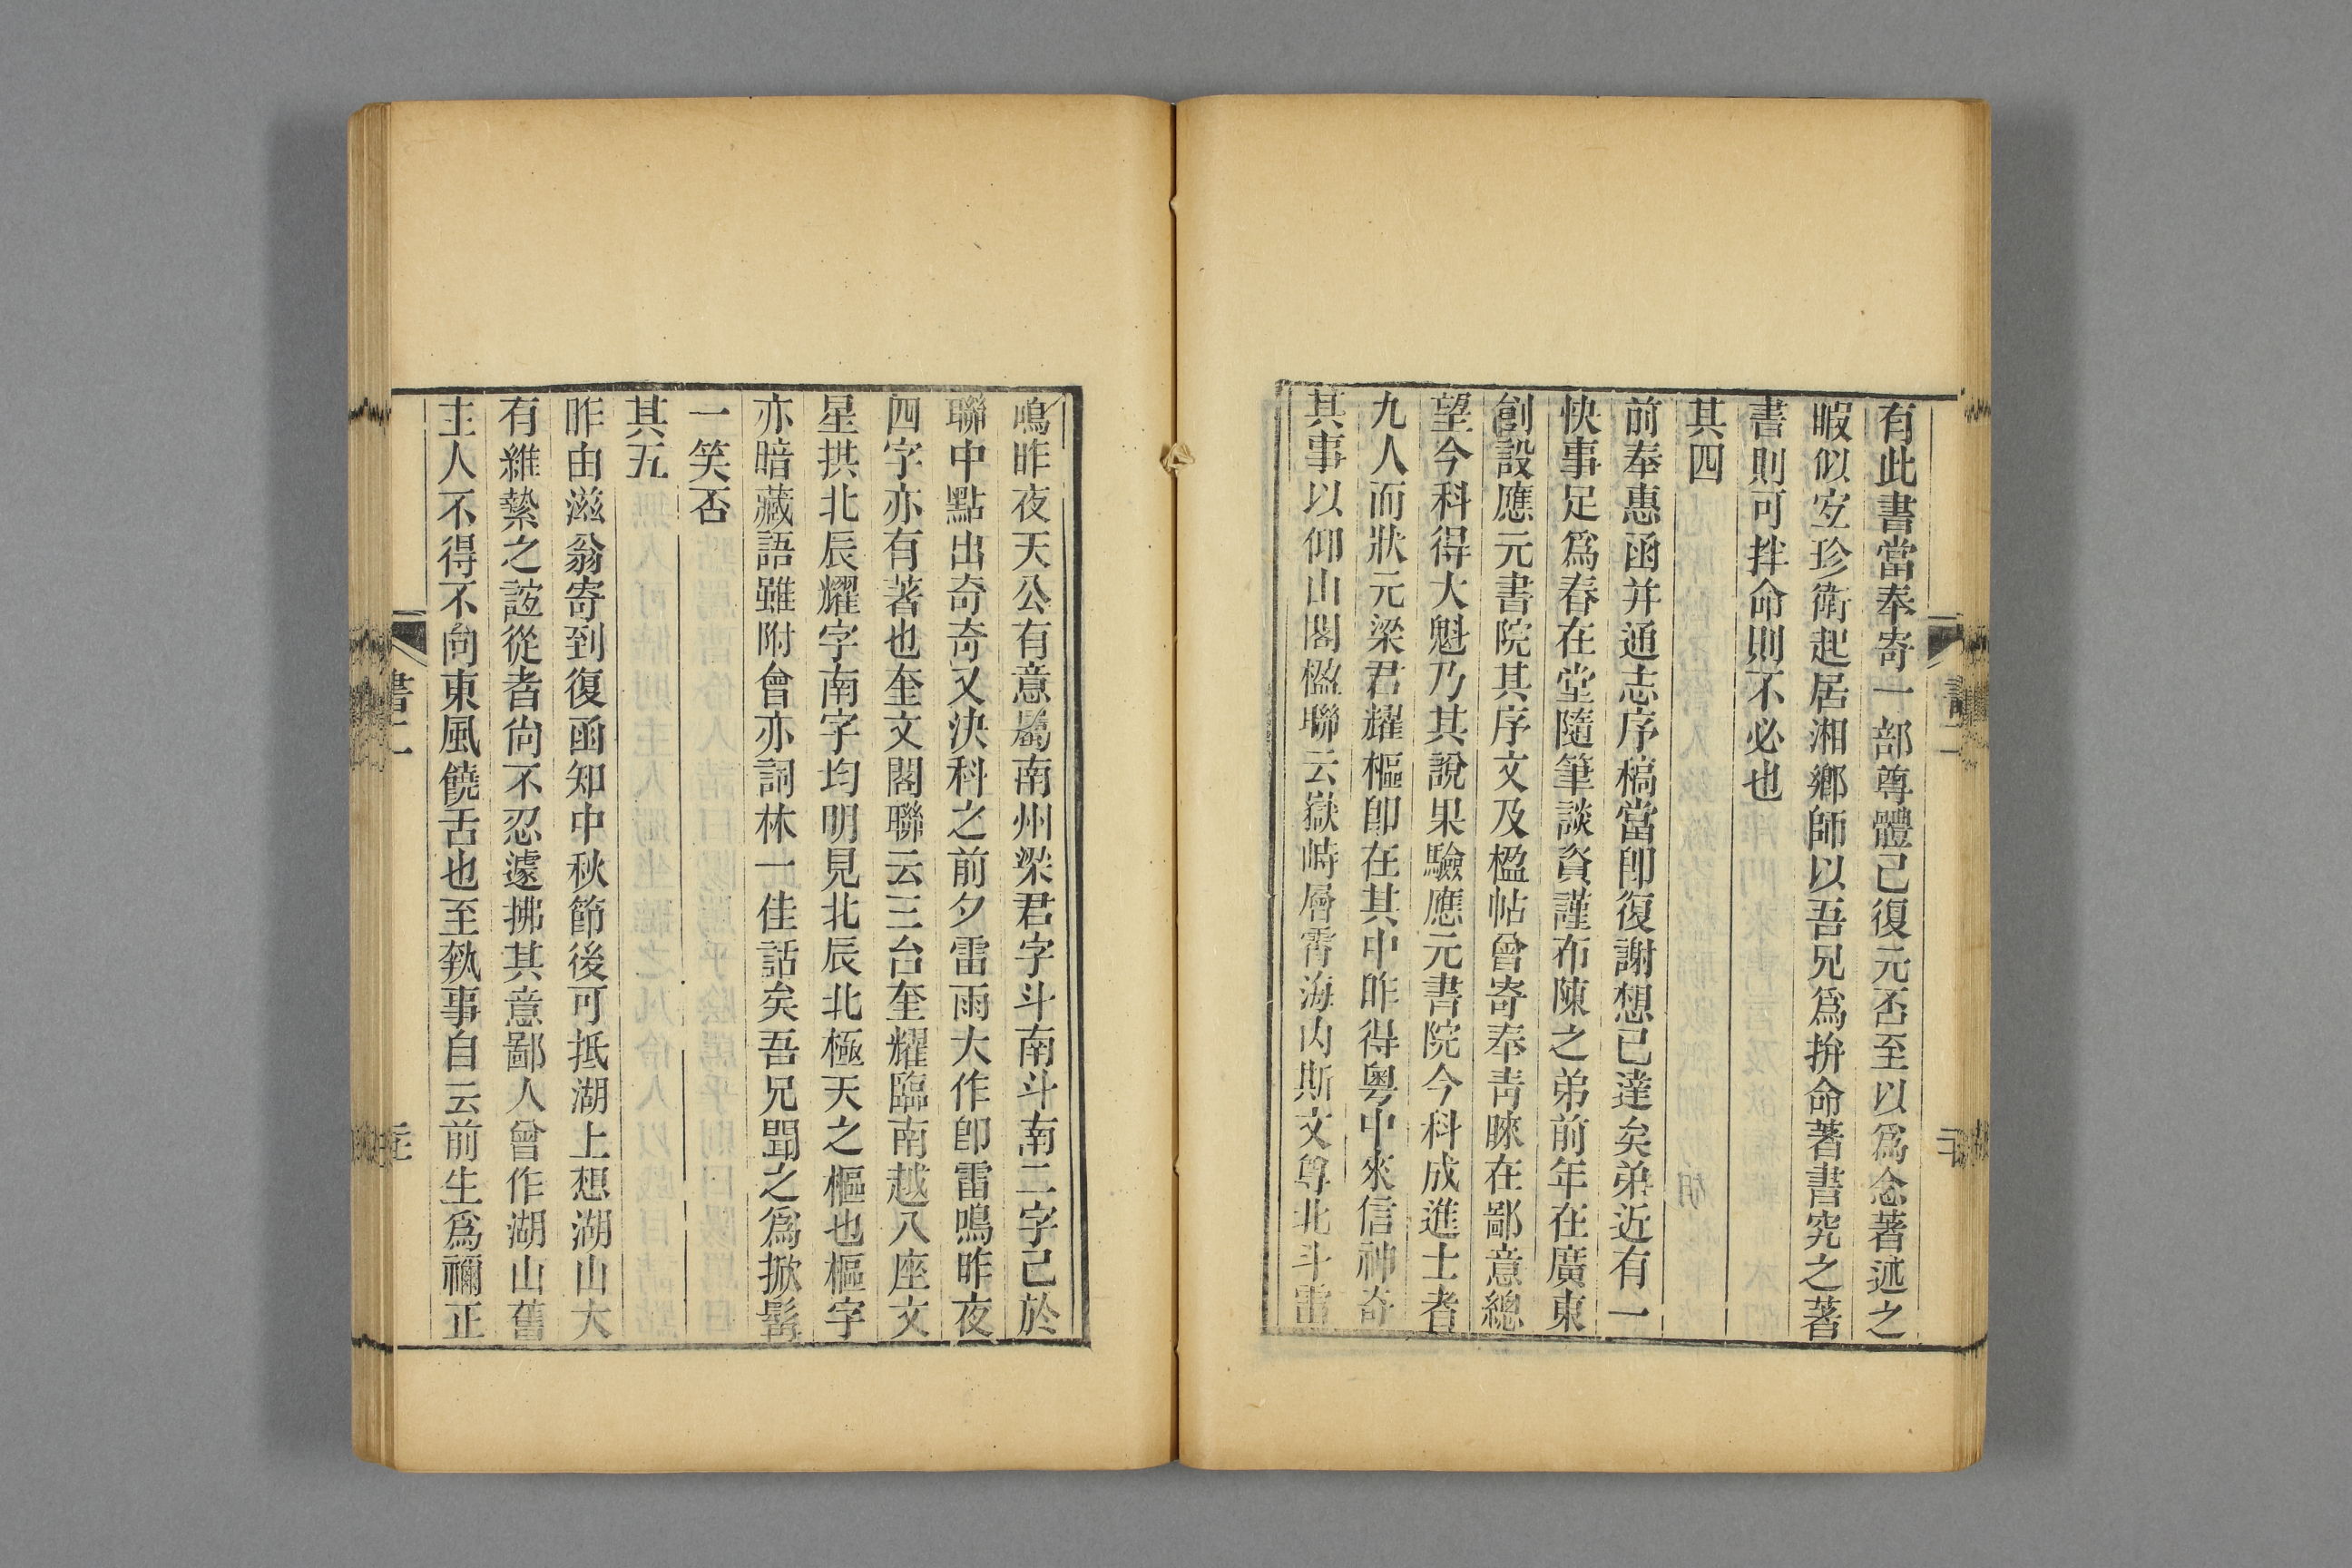 有此書當奉寄一部尊體已復元否至以爲念著述之
暇似宜珍衛起居湘鄉師以吾兄爲拚命著書究之著
書則可拌命則不必也
其四
前奉惠函并通志序槁當卽復謝想已達矣弟近有一
快事足爲春在堂隨筆談資謹布陳之弟前年在廣東
創設應元書院其序文及楹帖曾寄奉靑睞在鄙意總
望今科得大魁乃其說果驗應元書院今科成進士者
九人而狀元梁君耀樞卽在其中昨得粤中來信神奇
其事以仰山閣楹聯云嶽峙層霄海內斯文尊北斗雷
鳴昨夜天公有意屬南州梁君字斗南斗南二字已於
聯中點出奇奇又決科之前夕雷雨大作卽雷鳴昨夜
四字亦有著也奎文閣聯云三台奎耀臨南越八座文
星拱北辰耀字南字均明見北辰北極天之樞也樞字
亦暗藏語雖附會亦詞林一佳話矣吾兄聞之爲掀髯
一笑否
其五
昨由滋翁寄到復函知中秋節後可抵湖上想湖山大
有維縶之誼從者尙不忍遽拂其意鄙人曾作湖山舊
主人不得不向東風饒舌也至執事自云前生爲禰正
書二